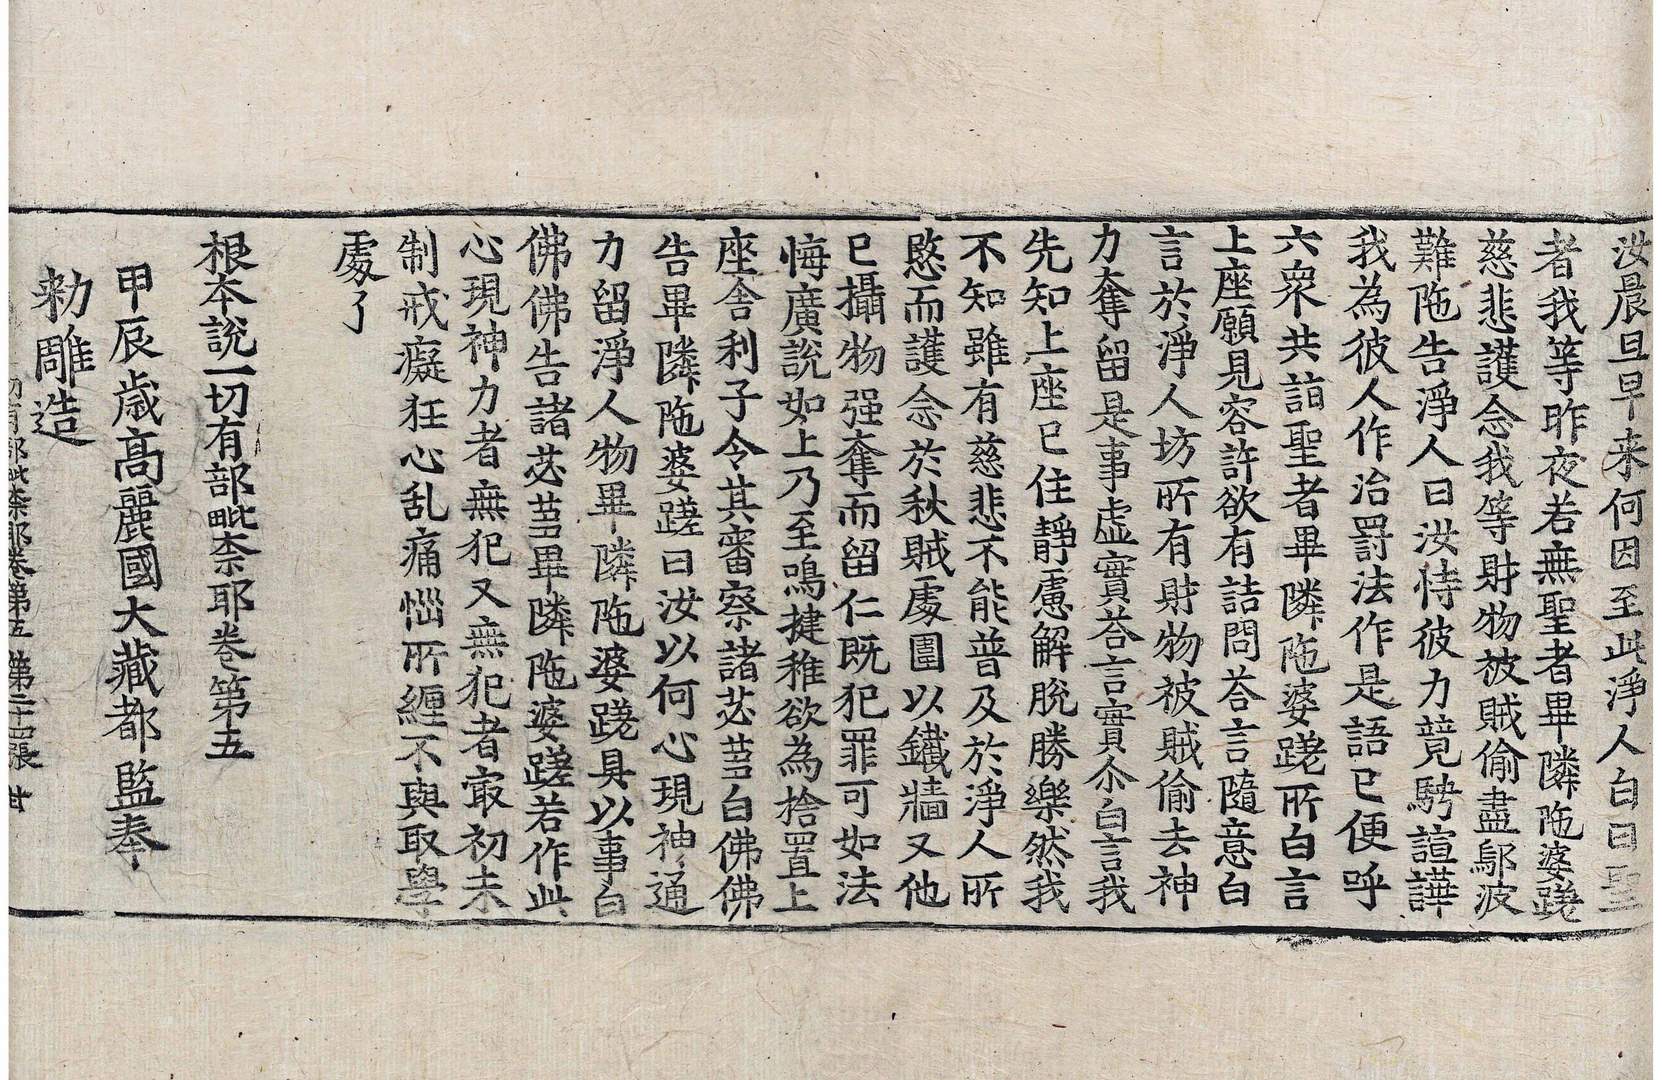 汝晨旦早来何因至此淨人白曰聖
者我等昨夜若無聖者畢隣陁婆蹉
慈悲護念我等財物被賊偷盡鄔波
難陁告淨人曰汝恃彼力競騁諠譁
我為彼人作治罸法作是語已便呼
六衆共詣聖者畢隣陁婆蹉所白言
上座願見容許欲有詰問荅言隨意白
言於淨人坊所有財物被賊偷去神
力奪留是事虛實荅言實尒白言我
先知上座已住靜慮解脫勝樂然我
不知雖有慈悲不能普及於淨人所
愍而護念於秋賊處圍以鐵牆又他
已攝物强奪而留仁既犯罪可如法
悔廣說如上乃至鳴揵稚欲為捨置上
座舍利子令其審察諸苾芻白佛佛
告畢隣陁婆蹉曰汝以何心現神通
力留淨人物畢隣陁婆蹉具以事白
佛佛告諸苾芻畢隣陁婆蹉若作此
心現神力者無犯又無犯者㝡初未
制戒癡狂心乱痛惱所纏不與取學
處了
根本說一切有部毗柰耶卷第五
甲辰歳高麗國大藏都監奉
勑雕造
切有部毗柰耶卷第五 第二十四張 甘